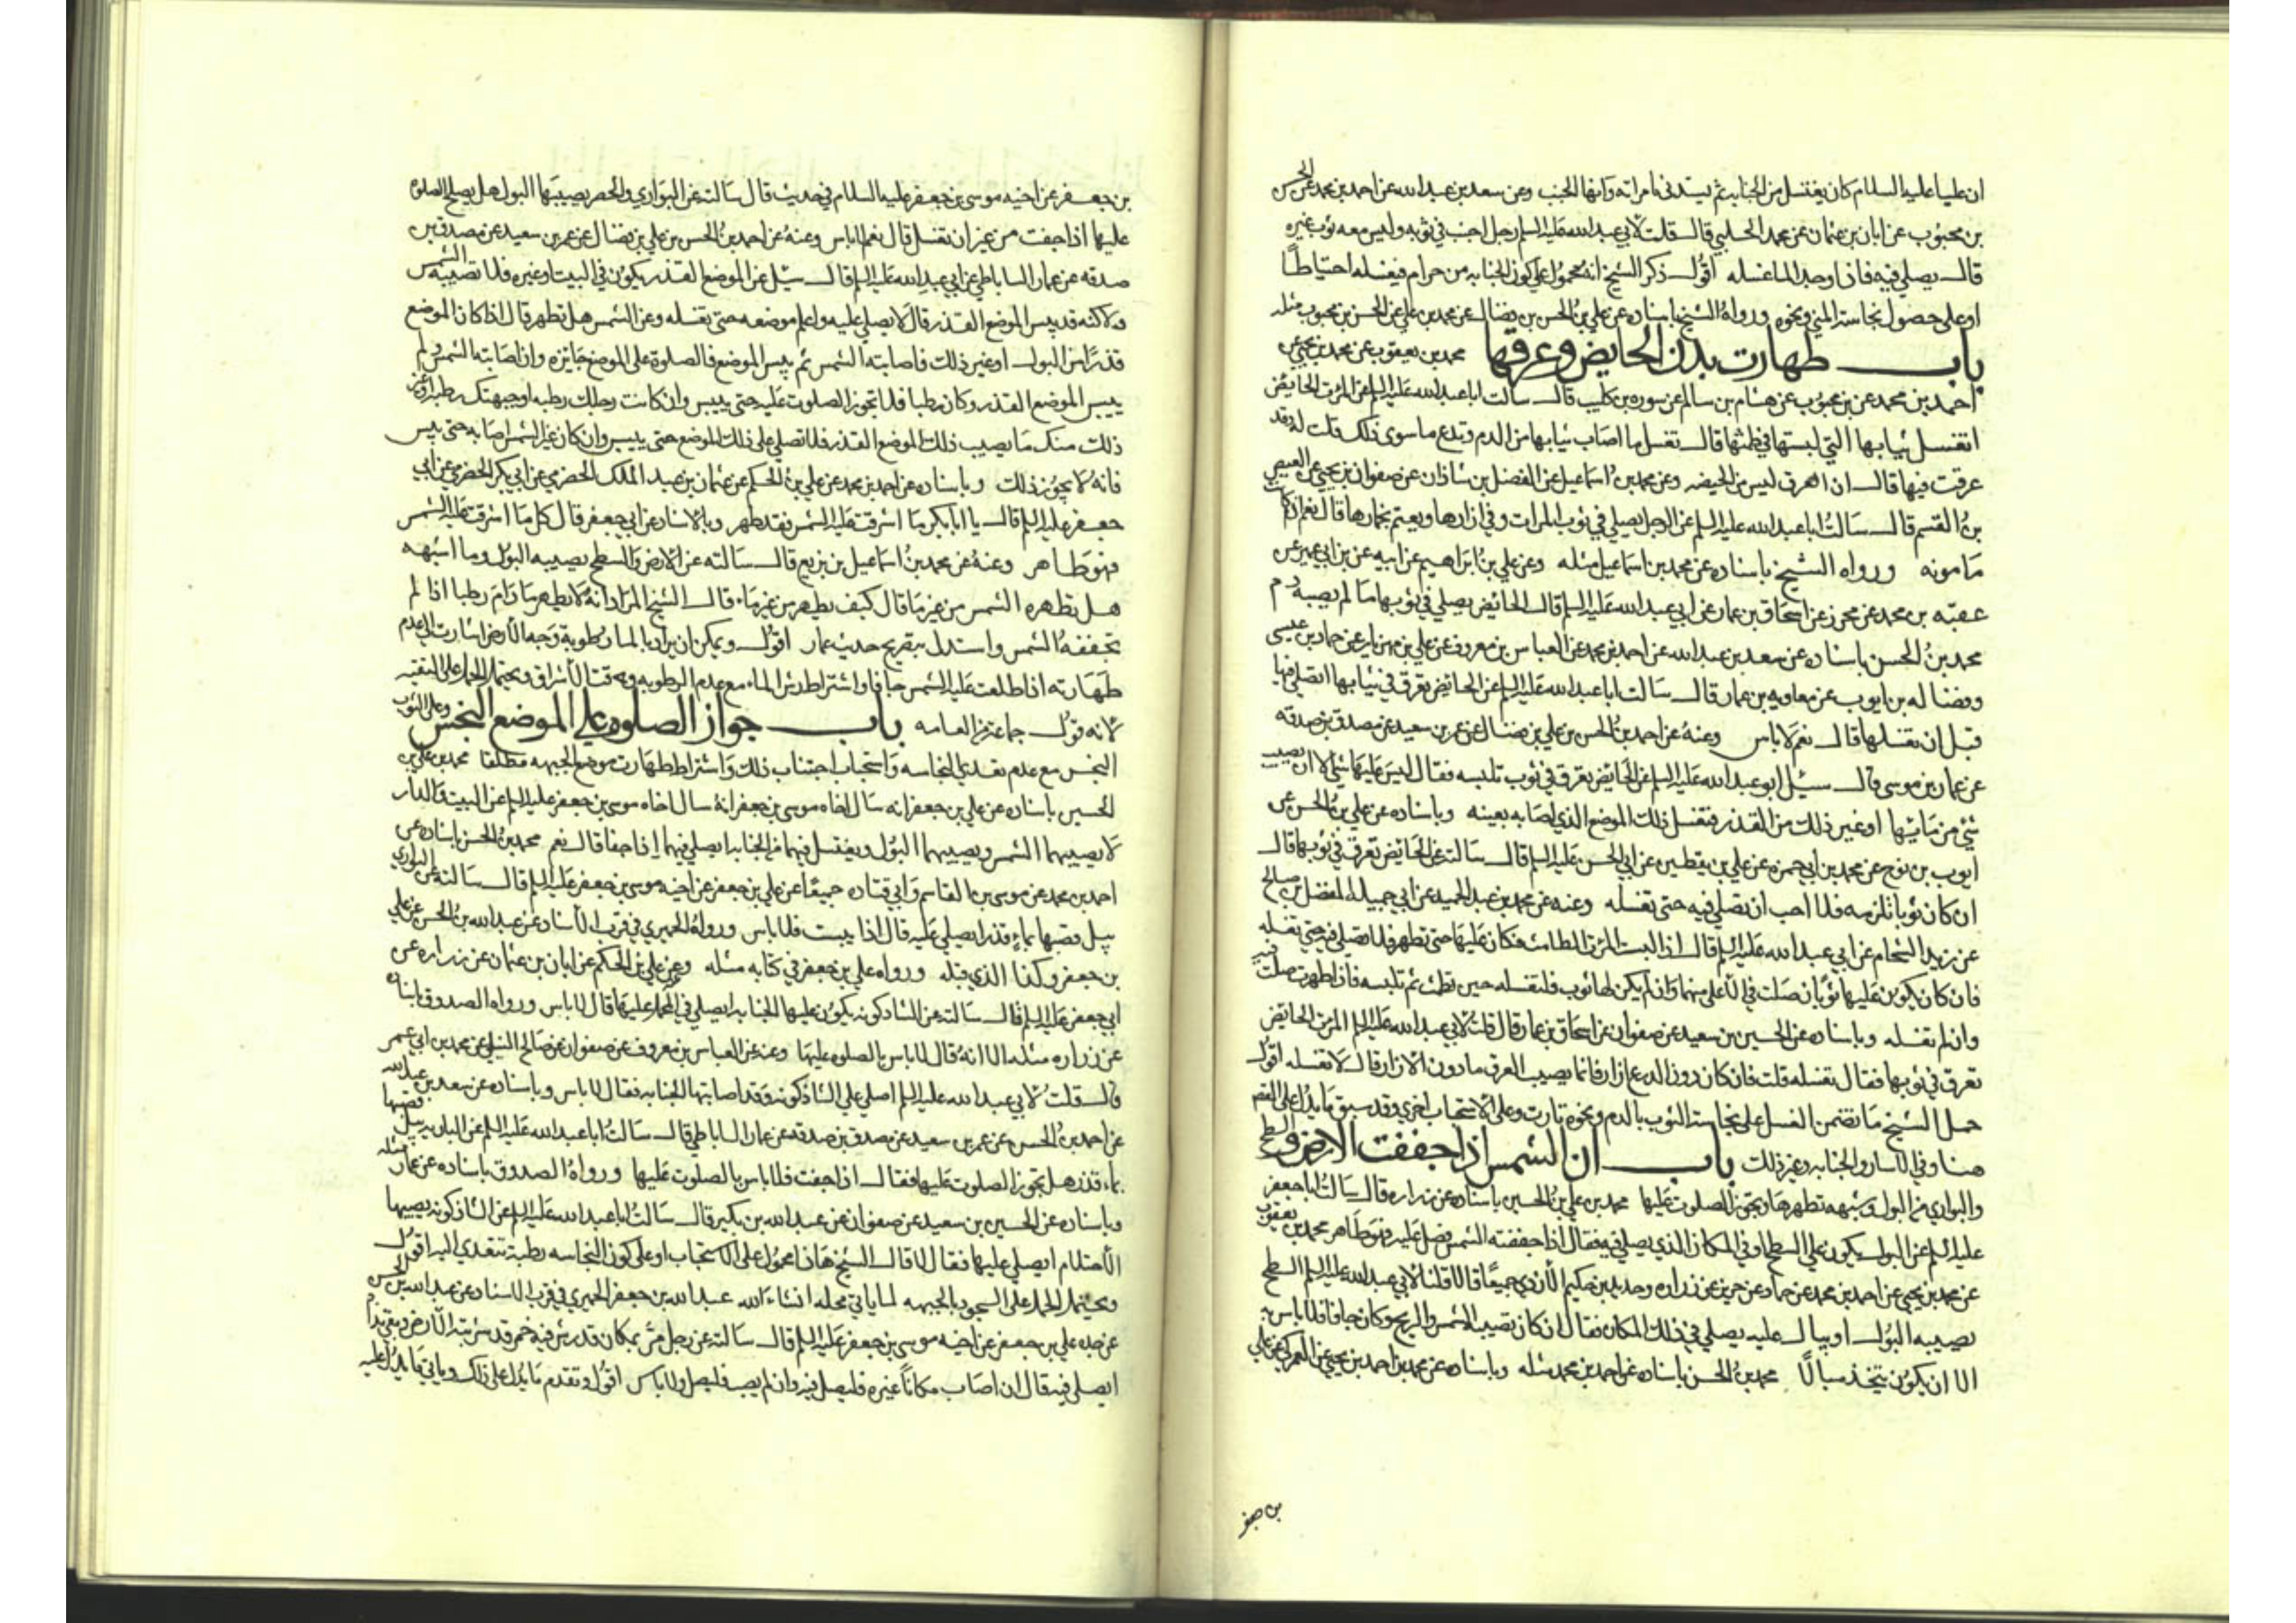 ان عليا عليه السلام كان يغتسل من الجنابه ثم يستدفى بامراته وانها لجنب وعن سعد بن عبدالله عن احمد بن محمد عن الحسن
بن محبوب عن ابان بن عثمان عن محمد الحلبي قال قلت لابي عبدالله عليه السلم رجل اجنب في ثوبه وليس معه ثوب غيره
قال يصلي فيه فاذا وجد الماء غسله اقول ذكر الشيخ انه محمول على كون الجنابه من حرام فيغسله احتياطا
او على حصول نجاسة المني ونحوه ورواه الشيخ باسناده عن علي بن الحسن بن فضال عن محمد بن علي عن الحسن بن محبوب مثله
باب طهارت بدن الحايض وعرقها محمد بن يعقوب عن محمد بن يحيى عن
احمد بن محمد عن بن محبوب عن هشام بن سالم عن سوره بن كليب قال سالت اباعبدالله عليه السلم عن المرئة الحايض
اتغسل ثيابها التي لبستها في طمثها قال تغسل ما اصاب ثيابها من الدم وتدع ما سوى ذلك قلت له وقد
عرقت فيها قال ان العرق ليس من الحيضه وعن محمد بن اسماعيل عن الفضل بن شاذان عن صفوان بن يحيى عن العيص
بن القسم قال سالت اباعبدالله عليه السلم عن الرجل يصلي في ثوب المرات وفي ازارها ويعتم بخمارها قال نعم اذا كانت
مامونه ورواه الشيخ باسناده عن محمد بن اسماعيل مثله وعن علي بن ابراهيم عن ابيه عن بن ابي عمير عن
عقبه بن محمد عن محرز عن اسحاق بن عمار عن ابي عبدالله عليه السلم قال الحائض يصلي في ثوبها ما لم يصبه دم
محمد بن الحسن باسناده عن سعد بن عبدالله عن احمد بن محمد عن العباس بن معروف عن علي بن مهزيار عن حماد بن عيسى
وفضاله بن ايوب عن معاويه بن عمار قال سالت اباعبدالله عليه السلم عن الحايض تعرق في ثيابها اتصلي فيها
قبل ان تغسلها قال نعم لاباس وعنه عن احمد بن الحسن بن علي بن فضال عن عمر بن سعيد عن مصدق بن صدقه
عن عمار بن موسى قال سئل ابوعبدالله عليه السلم عن الحايض تعرق في ثوب تلبسه فقال ليس عليها شي الا ان يصيب
شي من مائها او غير ذلك من القذر فتغسل ذلك الموضع الذي اصابه بعينه وباسناده عن علي بن الحسن عن
ايوب بن نوح عن محمد بن ابي حمزه عن علي بن يقطين عن ابي الحسن عليه السلم قال سالته عن الحايض تعرق في ثوبها قال
ان كان ثوبا تلزمه فلا احب ان تصلي فيه حتى تغسله وعنه عن محمد بن عبدالحميد عن ابي جميله المفضل بن صالح
عن زيد الشحام عن ابي عبدالله عليه السلم قال اذا لبست المرئة الطامث فكان عليها حتى تطهر فلا تصلي فيه حتى تغسله
فان كان يكون عليها ثوبان صلت في الاعلى منهما وان لم يكن لها ثوب فلتغسله حين تطمث ثم تلبسه فاذا طهرت صلت فيه
وان لم تغسله وباسناده عن الحسين بن سعيد عن صفوان عن اسحاق بن عمار قال قلت لابي عبدالله عليه السلم المرئة الحائض
تعرق في ثوبها فقال تغسله قلت فان كان دون الدرع ازار فانما يصيب العرق مادون الازار قال لا تغسله اقول
حمل الشيخ ما تضمن الغسل على نجاسة الثوب بالدم ونحوه تارت وعلى الاستحباب اخرى وقد سبق مايدل على القصد
هنا وفي الاسار والجنابه وغير ذلك باب ان الشمس اذا جففت الارض والسطح
والبواري من البول وشبهه تطهرها ويجوز الصلوت عليها محمد بن علي بن الحسين باسناده عن زراره قال سالت اباجعفر
عليه السلم عن البول يكون على السطح او في المكان الذي يصلي فيه فقال اذا جففته الشمس فصل عليه فهو طاهر محمد بن يعقوب
عن محمد بن يحيى عن احمد بن محمد عن حماد عن حريز عن زراره وحديد بن حكيم الازدي جميعا قالا قلنا لابي عبدالله عليه السلم السطح
يصيبه البول او يبال عليه يصلي في ذلك المكان فقال ان كان تصيبه الشمس والريح وكان جافا فلا باس به
الا ان يكون يتخذ مبالا محمد بن الحسن باسناده عن احمد بن محمد مثله وباسناده عن محمد بن احمد بن يحيى عن العمركي عن علي
بن جعفر
بن جعفر عن اخيه موسى بن جعفر عليه السلام في حديث قال سالته عن البواري والحصر يصيبها البول هل يصلح الصلوه
عليها اذا جفت من غير ان تغسل قال نعم لاباس وعنه عن احمد بن الحسن بن علي بن فضال عن عمر بن سعيد عن مصدق بن
صدقه عن عمار الساباطي عن ابي عبدالله عليه السلم قال سئل عن الموضع القذر يكون في البيت او غيره فلا تصيبه الشمس
ولاكنه قد يبس الموضع القذر قال لا يصلي عليه واعلم موضعه حتى تغسله وعن الشمس هل تطهر قال اذا كان الموضع
قذرا من البول او غير ذلك فاصابته الشمس ثم يبس الموضع فالصلوة على الموضع جايزه وان اصابته الشمس ولم
ييبس الموضع القذر وكان رطبا فلا تجوز الصلوت عليه حتى ييبس وان كانت رجلك رطبه او جبهتك رطبة او غير
ذلك منك ما يصيب ذلك الموضع القذر فلا تصلي على ذلك الموضع حتى ييبس وان كان غير الشمس اصابه حتى ييبس
فانه لا يجوز ذلك وباسناده عن احمد بن محمد عن علي بن الحكم عن عثمان بن عبدالملك الحضرمي عن ابي بكر الحضرمي عن ابي
جعفر عليه السلم قال يا ابابكر ما اشرقت عليه الشمس فقد طهر وبالاسناد عن ابي جعفر قال كل ما اشرقت عليه الشمس
فهو طاهر وعنه عن محمد بن اسماعيل بن بزيع قال سالته عن الارض والسطح يصيبه البول وما اشبهه
هل تطهره الشمس من غير ما قال كيف يطهر من غير ماء قال الشيخ المراد انه لا يطهر ما دام رطبا اذا لم
تجففه الشمس واستدل بتصريح حديث عمار اقول ويمكن ان يراد بالماء رطوبة وجه الارض اشارت الى عدم
طهارته اذا طلعت عليه الشمس جافا واشتراط رش الماء مع عدم الرطوبه وقت الاشراق ويحتمل الحمل على التقيه
لانه قول جماعة من العامه باب جواز الصلوه على الموضع النجس وعلى الثوب
النجس مع عدم تعدي النجاسه واستحباب اجتناب ذلك واشتراط طهارت موضع الجبهه مطلقا محمد بن علي بن
الحسين باسناده عن علي بن جعفر انه سال اخاه موسى بن جعفر انه سال اخاه موسى بن جعفر عليه السلم عن البيت والدار
لا يصيبهما الشمس ويصيبهما البول ويغتسل فيهما من الجنابه ايصلي فيهما اذا جفا قال نعم محمد بن الحسن باسناده عن
احمد بن محمد عن موسى بن القاسم وابي قتاده جميعا عن علي بن جعفر عن اخيه موسى بن جعفر عليه السلم قال سالته عن البواري
يبل قصبها بماء قذر ايصلي عليه قال اذا يبست فلا باس ورواه الحميري في قرب الاسناد عن عبدالله بن الحسن عن علي
بن جعفر وكذا الذي قبله ورواه علي بن جعفر في كتابه مثله وعن علي بن الحكم عن ابان بن عثمان عن زراره عن
ابي جعفر عليه السلم قال سالته عن الشاذكونه يكون عليها الجنابه ايصلي في المحمل عليها قال لا باس ورواه الصدوق باسناده
عن زراره مثله الا انه قال لا باس بالصلوه عليها وعنه عن العباس بن معروف عن صفوان عن صالح النيلي عن محمد بن ابي عمير
قال قلت لابي عبدالله عليه السلم اصلي على الشاذكونه وقد اصابتها الجنابه فقال لا باس وباسناده عن سعد بن عبدالله
عن احمد بن الحسن وعن عمر بن سعيد عن مصدق بن صدقه عن عمار الساباطي قال سالت اباعبدالله عليه السلم عن الباريه يبل قصبها
بماء قذر هل يجوز الصلوت عليها فقال اذا جفت فلا باس بالصلوت عليها ورواه الصدوق باسناده عن عمار مثله
وباسناده عن الحسين بن سعيد عن صفوان عن عبدالله بن بكير قال سالت اباعبدالله عليه السلم عن الشاذكونه يصيبها
الاحتلام ايصلي عليها فقال لا قال الشيخ هذا محمول على الاستحباب او على كون النجاسه رطبة تتعدي اليه اقول
ويحتمل الحمل على السجود بالجبهه لما ياتي محله انشاء الله عبدالله بن جعفر الحميري في قرب الاسناد عن عبدالله بن الحسن
عن جده علي بن جعفر عن اخيه موسى بن جعفر عليه السلم قال سالته عن رجل مر بمكان قد رش فيه خمر قد شربته الارض وبقي نداه
ايصلي فيه قال ان اصاب مكانا غيره فليصل فيه وان لم يصب فليصل ولا باس اقول وتقدم ما يدل على ذلك وياتي ما يدل عليه